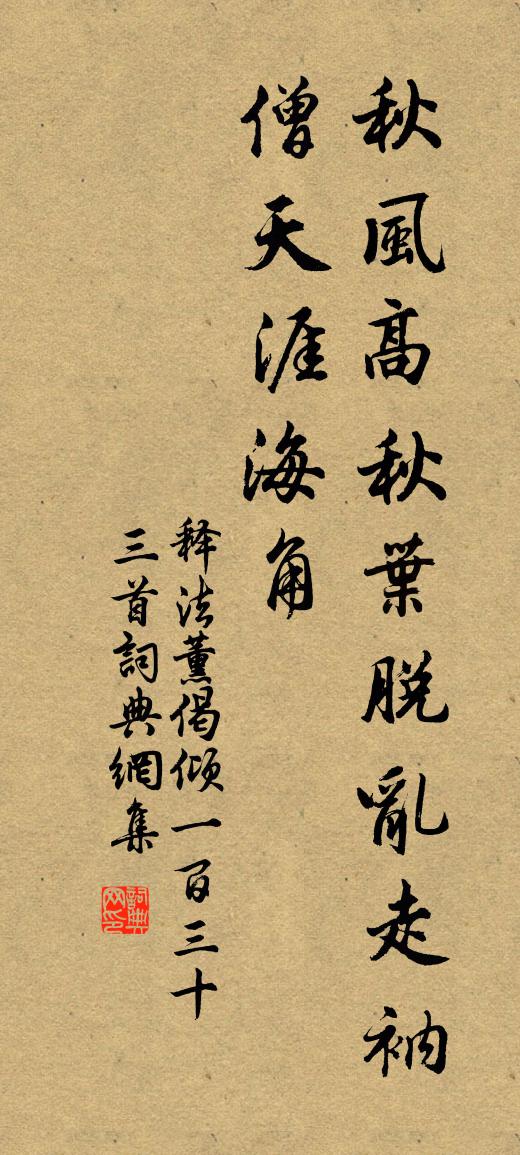 秋風高秋葉脱亂走衲
僧天涯海角
释法薰偈倾一百三十
三首詞典網集
詞典
网印